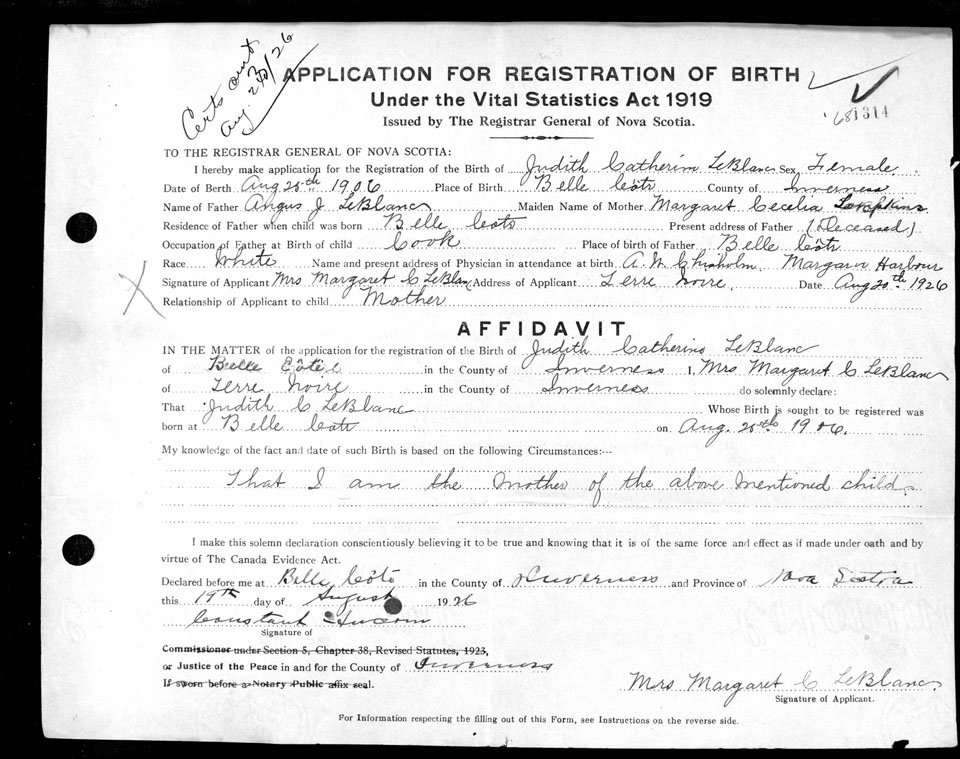 Certs out
Aug. 30/26
APPLICATION FOR REGISTRATION OF BIRTH
Under the Vital Statistics Act 1919
Issued by The Registrar General of Nova Scotia.
681314
TO THE REGISTRAR GENERAL OF NOVA SCOTIA:
I hereby make application for the Registration of the Birth of Judith Catherine LeBlanc Sex Female
Date of Birth Aug 25th 1906 Place of Birth Belle Côte County of Inverness
Name of Father Angus J LeBlanc Maiden Name of Mother Margaret Cecelia
Residence of Father when child was born Belle Côte Present address of Father (Deceased)
Occupation of Father at Birth of child Cook Place of birth of Father Belle Côte
Race White Name and present address of Physician in attendance at birth A. N. Chisholm Margaree Harbour
Signature of Applicant Mrs Margaret C LeBlanc Address of Applicant Terre Noire Date Aug 20th 1926
Relationship of Applicant to child Mother
AFFIDAVIT
IN THE MATTER of the application for the registration of the Birth of Judith Catherine LeBlanc
of Belle Côte in the County of Inverness I, Mrs Margaret C LeBlanc
of Terre Noire in the County of Inverness do solemnly declare:
That Judith C LeBlanc Whose Birth is sought to be registered was
born at Belle Cote on Aug. 25th 1906.
My knowledge of the fact and date of such Birth is based on the following Circumstances:—
That I am the Mother of the above mentioned child.
I make this solemn declaration conscientiously believing it to be true and knowing that it is of the same force and effect as if made under oath and by
virtue of The Canada Evidence Act.
Declared before me at Belle Côte in the County of Inverness and Province of Nova Scotia
this 19th day of August 1926
Constant Aucoin
Signature of
Commissioner under Section 5, Chapter 38, Revised Statutes, 1923,
or Justice of the Peace in and for the County of Inverness
If sworn before a Notary Public affix seal.
Mrs Margaret C LeBlanc
Signature of Applicant.
For Information respecting the filling out of this Form, see Instructions on the reverse side.